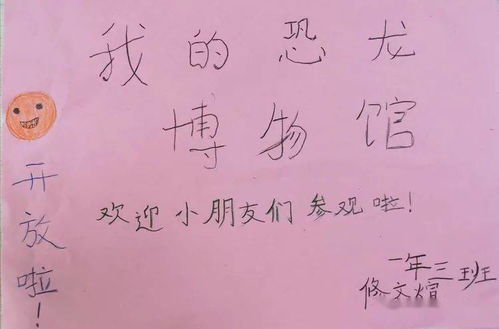 我的恐龙
博物馆
开放啦!
欢迎小朋友们参观啦!
一年三班
修文煊